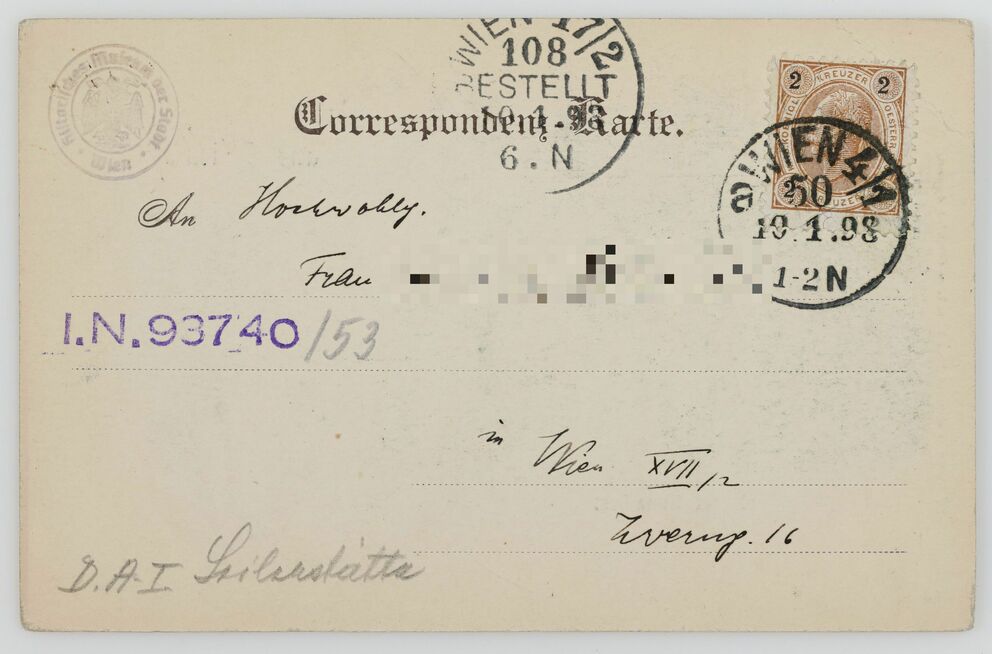 WIEN 17/2
108
BESTELLT
10.1.98
6.N
Historisches Museum der Stadt Wien
Correspondenz-Karte.
2 KREUZER 2
WIEN 4/1
50
10.1.98
1-2N
An Hochwohlg.
Frau
I.N. 93740/53
in Wien XVII/2
16
D.A.I. Seilerstätte